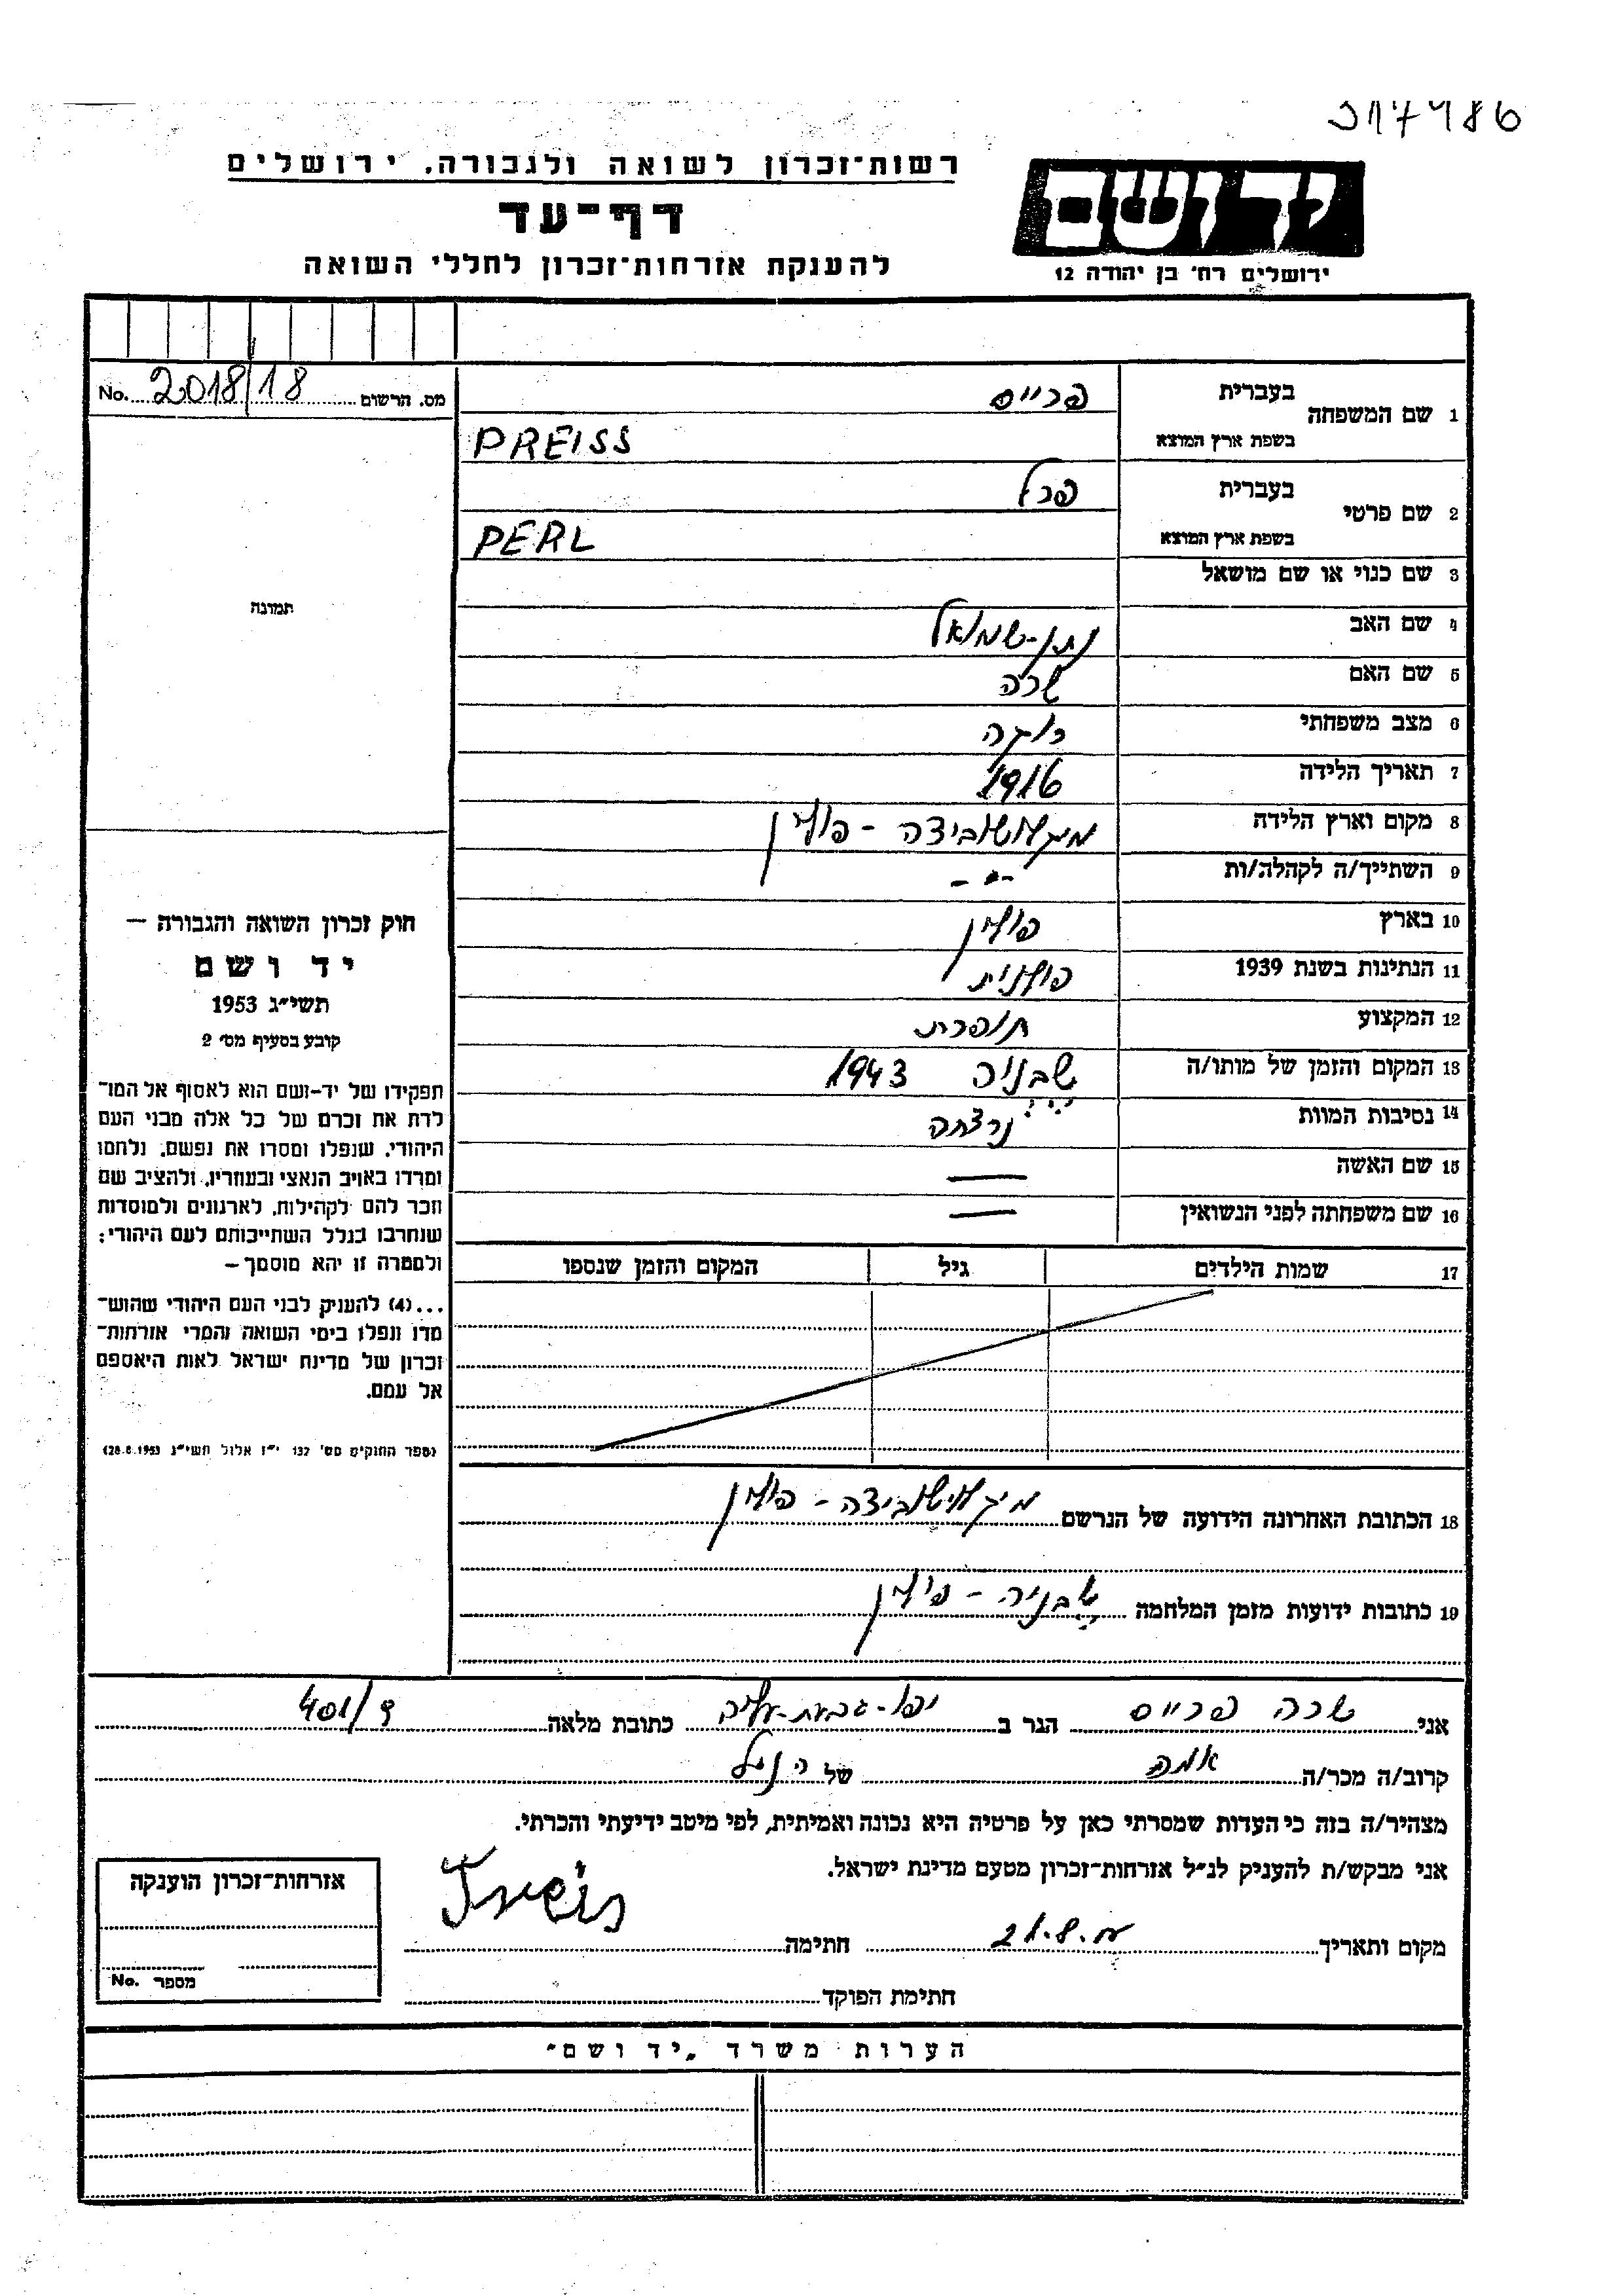 317486
רשות־זכרון לשואה ולגבורה, ירושלים
דף־עד
להענקת אזרחות־זכרון לחללי השואה
יד ושם
ירושלים רח' בן יהודה 12
מס. הרשום 2018/18 No.
תמונה
חוק זכרון השואה והגבורה —
יד ושם
תשי״ג 1953
קובע בסעיף מס' 2
תפקידו של יד-ושם הוא לאסוף אל המו־
לדת את זכרם של כל אלה מבני העם
היהודי, שנפלו ומסרו את נפשם, נלחמו
ומרדו באויב הנאצי ובעוזריו, ולהציב שם
וזכר להם לקהילות, לארגונים ולמוסדות
שנחרבו בגלל השתייכותם לעם היהודי;
ולמטרה זו יהא מוסמך —
...(4) להעניק לבני העם היהודי שהוש־
מדו ונפלו בימי השואה והמרי אזרחות־
זכרון של מדינת ישראל לאות היאספם
אל עמם.
(ספר החוקים מס' 132 י״ז אלול תשי״ג 28.8.1953)
1 שם המשפחה
בעברית פרייס
בשפת ארץ המוצא PREISS
2 שם פרטי
בעברית פרל
בשפת ארץ המוצא PERL
3 שם כנוי או שם מושאל
4 שם האב נתן-שמואל
5 שם האם שרה
6 מצב משפחתי רווקה
7 תאריך הלידה 1916
8 מקום וארץ הלידה - פולין
9 השתייך/ה לקהלה/ות -"-
10 בארץ פולין
11 הנתינות בשנת 1939 פולנית
12 המקצוע תופרת
13 המקום והזמן של מותו/ה שבניה 1943
14 נסיבות המוות נרצחה
15 שם האשה —
16 שם משפחתה לפני הנשואין —
17 שמות הילדים גיל המקום והזמן שנספו
18 הכתובת האחרונה הידועה של הנרשם - פולין
19 כתובות ידועות מזמן המלחמה שבניה - פולין
אני שרה פרייס הגר ב יפו-גבעת-עליה כתובת מלאה 401/ד
קרוב/ה מכר/ה אמה של הנ"ל
מצהיר/ה בזה כי העדות שמסרתי כאן על פרטיה היא נכונה ואמיתית, לפי מיטב ידיעתי והכרתי.
אני מבקש/ת להעניק לנ״ל אזרחות־זכרון מטעם מדינת ישראל.
מקום ותאריך חתימה
חתימת הפוקד
אזרחות־זכרון הוענקה
מספר No.
הערות משרד „יד ושם"